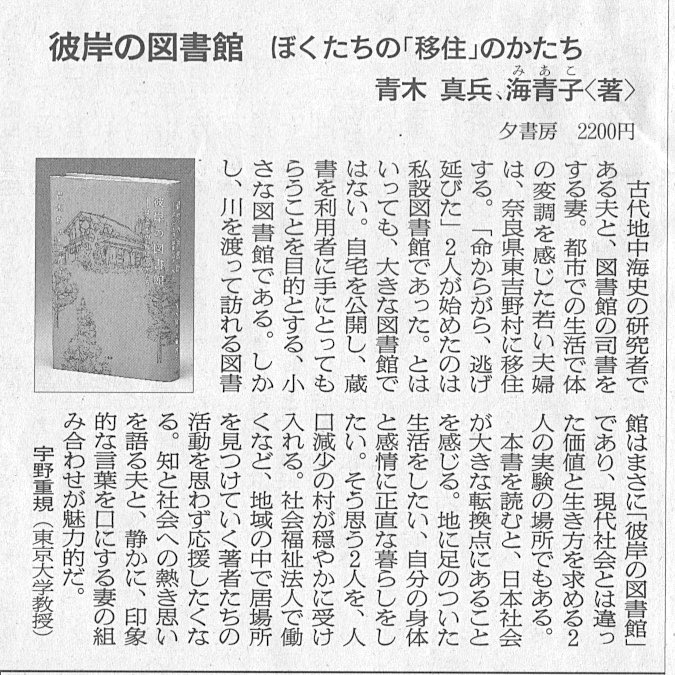 彼岸の図書館 ぼくたちの「移住」のかたち
青木 真兵、海青子〈著〉
みあこ
夕書房 2200円
古代地中海史の研究者で
ある夫と、図書館の司書を
する妻。都市での生活で体
の変調を感じた若い夫婦
は、奈良県東吉野村に移住
する。「命からがら、逃げ
延びた」2人が始めたのは
私設図書館であった。とは
いっても、大きな図書館で
はない。自宅を公開し、蔵
書を利用者に手にとっても
らうことを目的とする、小
さな図書館である。しか
し、川を渡って訪れる図書
館はまさに「彼岸の図書館」
であり、現代社会とは違っ
た価値と生き方を求める2
人の実験の場所でもある。
本書を読むと、日本社会
が大きな転換点にあること
を感じる。地に足のついた
生活をしたい、自分の身体
と感情に正直な暮らしをし
たい。そう思う2人を、人
口減少の村が穏やかに受け
入れる。社会福祉法人で働
くなど、地域の中で居場所
を見つけていく著者たちの
活動を思わず応援したくな
る。知と社会への熱き思い
を語る夫と、静かに、印象
的な言葉を口にする妻の組
み合わせが魅力的だ。
宇野重規(東京大学教授)